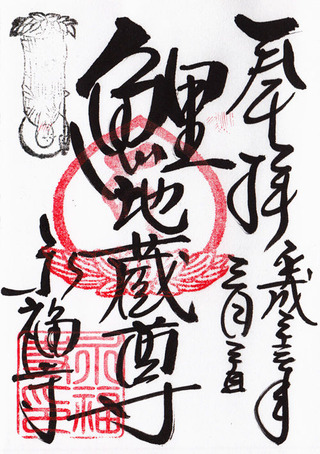 奉拝
平成二十三年
三月
鯉地蔵尊
永福寺
永福
寺印